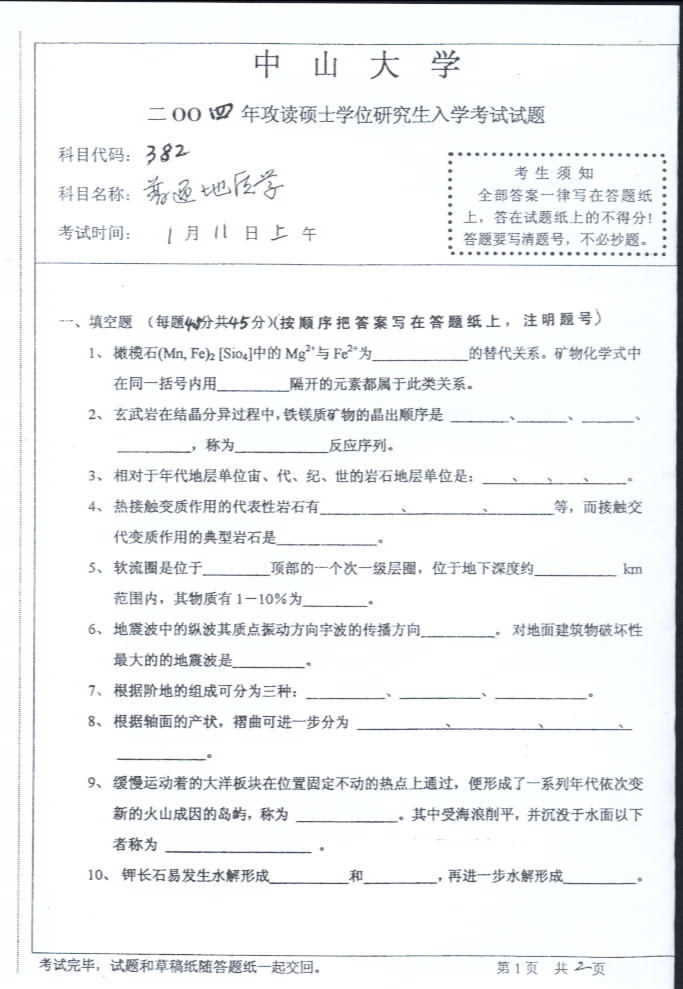 中山大学
二OO四年攻读硕士学位研究生入学考试试题
科目代码：382
科目名称：普通地质学
考试时间： 1 月 11 日 上 午
考 生 须 知
全部答案一律写在答题纸
上，答在试题纸上的不得分！
答题要写清题号，不必抄题。
一、填空题 （每题4.5分共45分）(按顺序把答案写在答题纸上，注明题号）
1、 橄榄石(Mn, Fe)₂ [Sio₄]中的 Mg²⁺与 Fe²⁺为____________的替代关系。矿物化学式中
在同一括号内用__________隔开的元素都属于此类关系。
2、 玄武岩在结晶分异过程中,铁镁质矿物的晶出顺序是 ________、________、________、
__________，称为____________反应序列。
3、 相对于年代地层单位宙、代、纪、世的岩石地层单位是：____、____、____、____。
4、 热接触变质作用的代表性岩石有__________、__________、__________等，而接触交
代变质作用的典型岩石是____________。
5、 软流圈是位于_________顶部的一个次一级层圈，位于地下深度约__________ km
范围内，其物质有 1－10%为________。
6、 地震波中的纵波其质点振动方向宇波的传播方向__________。 对地面建筑物破坏性
最大的的地震波是__________。
7、 根据阶地的组成可分为三种：__________、____________、____________。
8、 根据轴面的产状，褶曲可进一步分为 ____________、____________、__________、
____________。
9、 缓慢运动着的大洋板块在位置固定不动的热点上通过，便形成了一系列年代依次变
新的火山成因的岛屿，称为 ______________。其中受海浪削平，并沉没于水面以下
者称为 ____________________ 。
10、 钾长石易发生水解形成__________和__________，再进一步水解形成__________。
考试完毕，试题和草稿纸随答题纸一起交回。
第 1 页 共 2 页